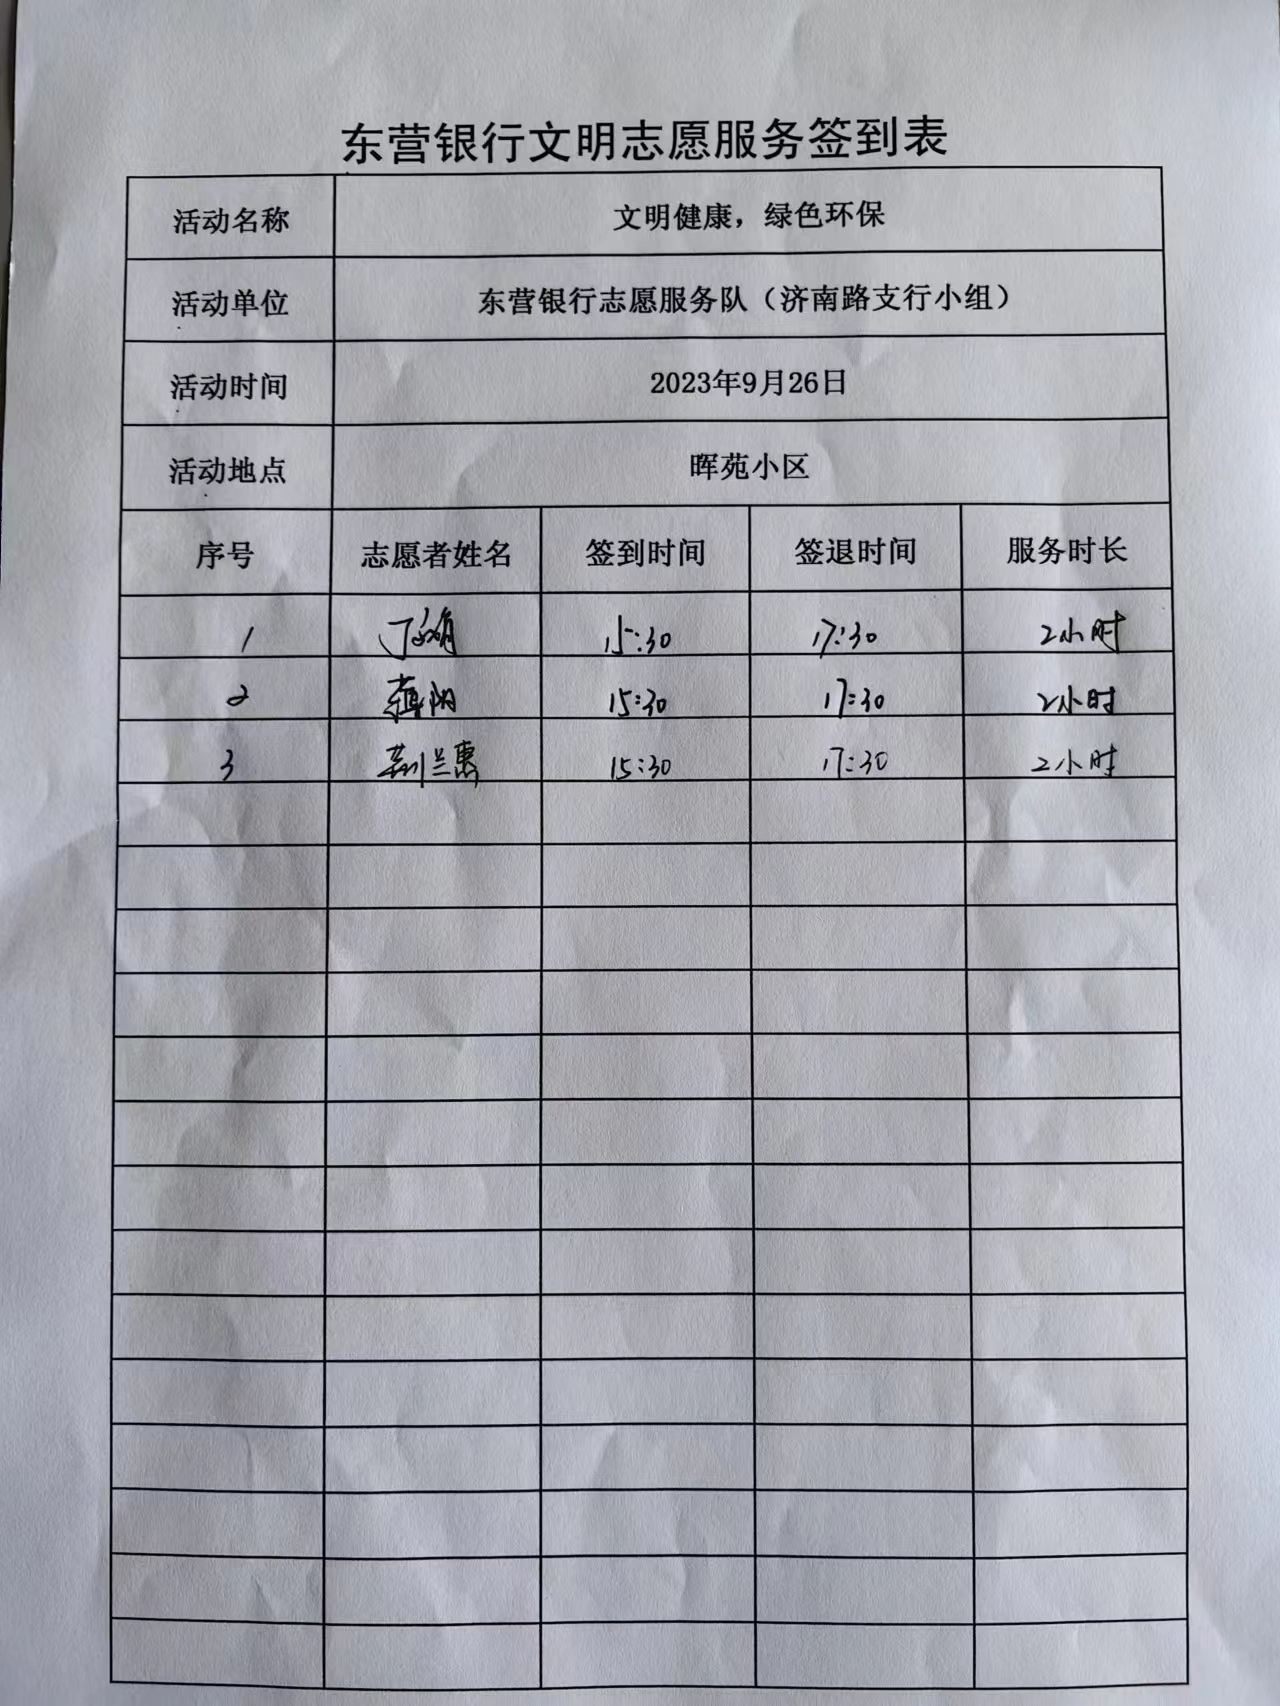 东营银行文明志愿服务签到表
活动名称 文明健康，绿色环保
活动单位 东营银行志愿服务队（济南路支行小组）
活动时间 2023年9月26日
活动地点 晖苑小区
序号 志愿者姓名 签到时间 签退时间 服务时长
1 丁 15:30 17:30 2小时
2 阳 15:30 17:30 2小时
3 荆兰惠 15:30 17:30 2小时